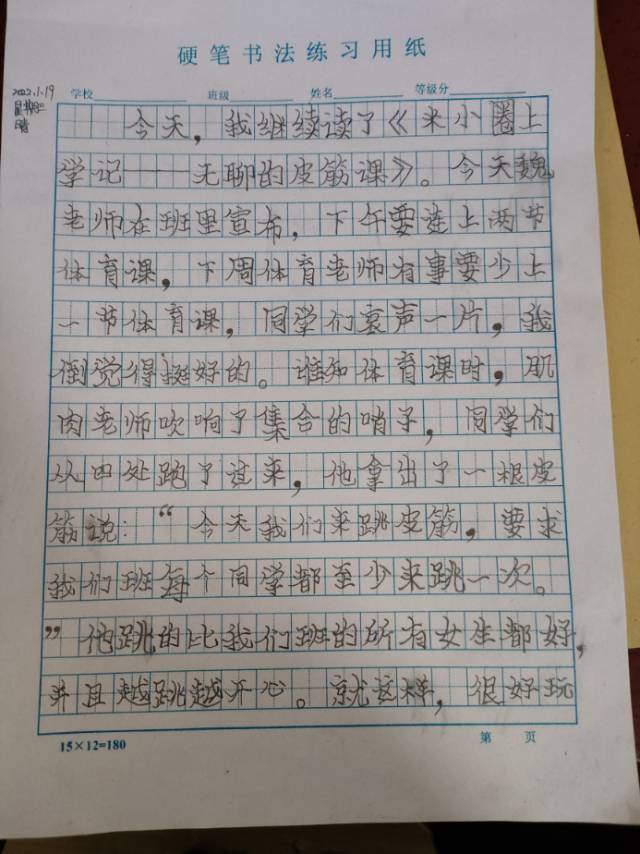 硬笔书法练习用纸
2022.1.19
星期三
晴
学校 班级 姓名 等级分
今天，我继续读了《米小圈上
学记——无聊的皮筋课》。今天魏
老师在班里宣布，下午要连上两节
体育课，下周体育老师有事要少上
一节体育课，同学们哀声一片，我
倒觉得挺好的。谁知体育课时，肌
肉老师吹响了集合的哨子，同学们
从四处跑了过来，他拿出了一根皮
筋说：“今天我们来跳皮筋，要求
我们班每个同学都至少来跳一次。
”他跳的比我们班的所有女生都好，
并且越跳越开心。就这样，很好玩
15×12=180
第 页